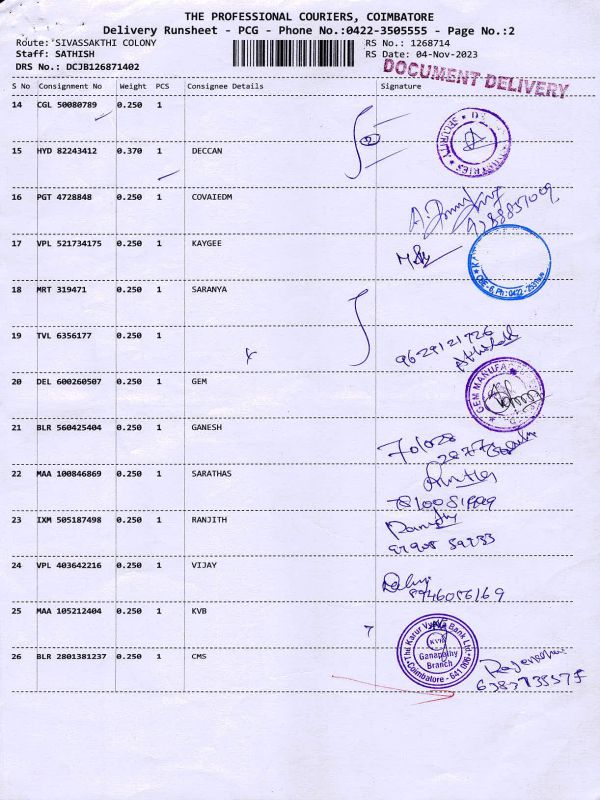 THE PROFESSIONAL COURIERS, COIMBATORE
Delivery Runsheet - PCG - Phone No.:0422-3505555 - Page No.:2
Route: SIVASSAKTHI COLONY
RS No.: 1268714
Staff: SATHISH
RS Date: 04-Nov-2023
DRS No.: DCJB126871402
DOCUMENT DELIVERY
S No Consignment No Weight PCS Consignee Details Signature
14 CGL 50080789 0.250 1
15 HYD 82243412 0.370 1 DECCAN
16 PGT 4728848 0.250 1 COVAIEDM
17 VPL 521734175 0.250 1 KAYGEE
18 MRT 319471 0.250 1 SARANYA
19 TVL 6356177 0.250 1
9629121726
20 DEL 600260507 0.250 1 GEM
GEM MANUFA
21 BLR 560425404 0.250 1 GANESH
22 MAA 100846869 0.250 1 SARATHAS
23 IXM 505187498 0.250 1 RANJITH
24 VPL 403642216 0.250 1 VIJAY
8946056169
25 MAA 105212404 0.250 1 KVB
The Karur Vysya Bank Ltd.
KVB
Ganapathy
Branch
Coimbatore - 641 006
26 BLR 2801381237 0.250 1 CMS